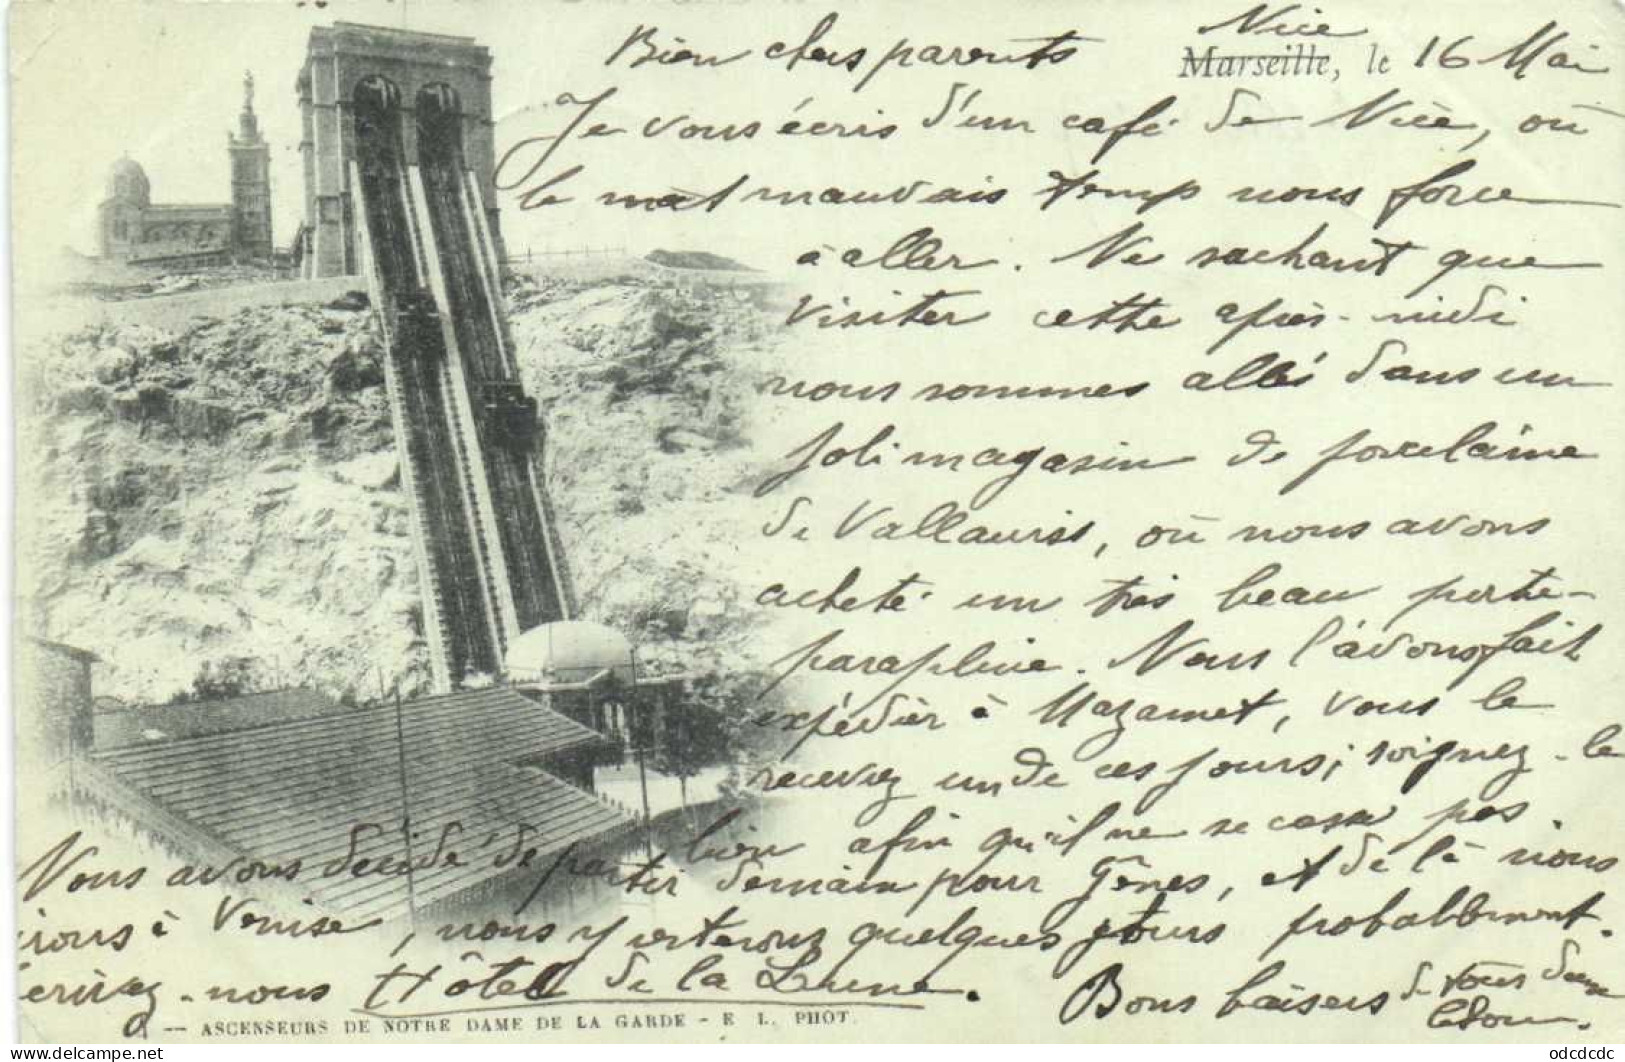 Nice
Bien chers parents Marseille, le 16 Mai
Je vous écris d'un café de Nice, où
le mauvais temp nous force
à aller. Ne sachant que
visiter cette après-midi
nous sommes allés dans un
joli magasin de porcelaine
de Vallauris, où nous avons
acheté un très beau porte-
parapluie. Nous l'avons fait
expédier à Mazamet, vous le
recevrez un de ces jours; soignez-le
bien afin qu'il ne se casse pas.
Nous avons décidé de partir demain pour Gênes, et de là nous
irons à Venise, nous y resterons quelques jours probablement.
Ecrivez-nous Hôtel de la Lune. Bons baisers de vous deux
ASCENSEURS DE NOTRE DAME DE LA GARDE - E. L. PHOT.
odcdcdc